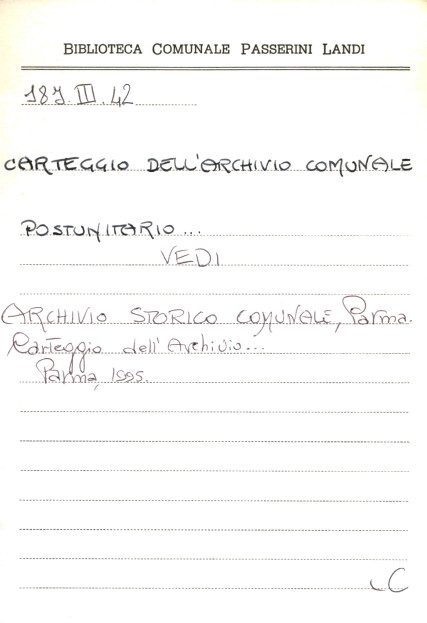 BIBLIOTECA COMUNALE PASSERINI LANDI
187. III. 42
CARTEGGIO DELL'ARCHIVIO COMUNALE
POSTUNITARIO...
VEDI
ARCHIVIO STORICO COMUNALE, Parma.
Carteggio dell'Archivio...
Parma, 1995.
C